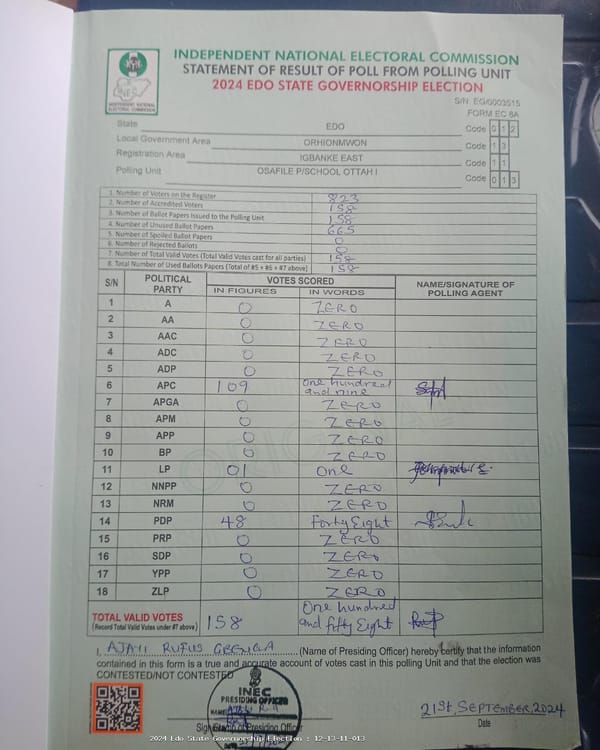 INDEPENDENT NATIONAL ELECTORAL COMMISSION
STATEMENT OF RESULT OF POLL FROM POLLING UNIT
2024 EDO STATE GOVERNORSHIP ELECTION
INDEPENDENT NATIONAL ELECTORAL COMMISSION
S/N. EG/0003515
FORM EC 8A
State EDO Code 0 1 2
Local Government Area ORHIONMWON Code 1 3
Registration Area IGBANKE EAST Code 1 1
Polling Unit OSAFILE P/SCHOOL OTTAH I Code 0 1 3
1. Number of Voters on the Register 823
2. Number of Accredited Voters 158
3. Number of Ballot Papers Issued to the Polling Unit 158
4. Number of Unused Ballot Papers 665
5. Number of Spoiled Ballot Papers 0
6. Number of Rejected Ballots 0
7. Number of Total Valid Votes (Total Valid Votes cast for all parties) 158
8. Total Number of Used Ballots Papers (Total of #5 + #6 + #7 above) 158
S/N POLITICAL PARTY VOTES SCORED NAME/SIGNATURE OF POLLING AGENT
IN FIGURES IN WORDS
1 A 0 ZERO
2 AA 0 ZERO
3 AAC 0 ZERO
4 ADC 0 ZERO
5 ADP 0 ZERO
6 APC 109 One hundred and nine
7 APGA 0 ZERO
8 APM 0 ZERO
9 APP 0 ZERO
10 BP 0 ZERO
11 LP 01 One
12 NNPP 0 ZERO
13 NRM 0 ZERO
14 PDP 48 Forty Eight
15 PRP 0 ZERO
16 SDP 0 ZERO
17 YPP 0 ZERO
18 ZLP 0 ZERO
TOTAL VALID VOTES (Record Total Valid Votes under #7 above) 158 One hundred and fifty Eight
I, AJAYI RUFUS (Name of Presiding Officer) hereby certify that the information
contained in this form is a true and accurate account of votes cast in this polling Unit and that the election was
CONTESTED/NOT CONTESTED
INEC
PRESIDING OFFICER
NAME
Signature of Presiding Officer
21st, SEPTEMBER, 2024
Date
2024 Edo State Governorship Election : 12-13-11-013